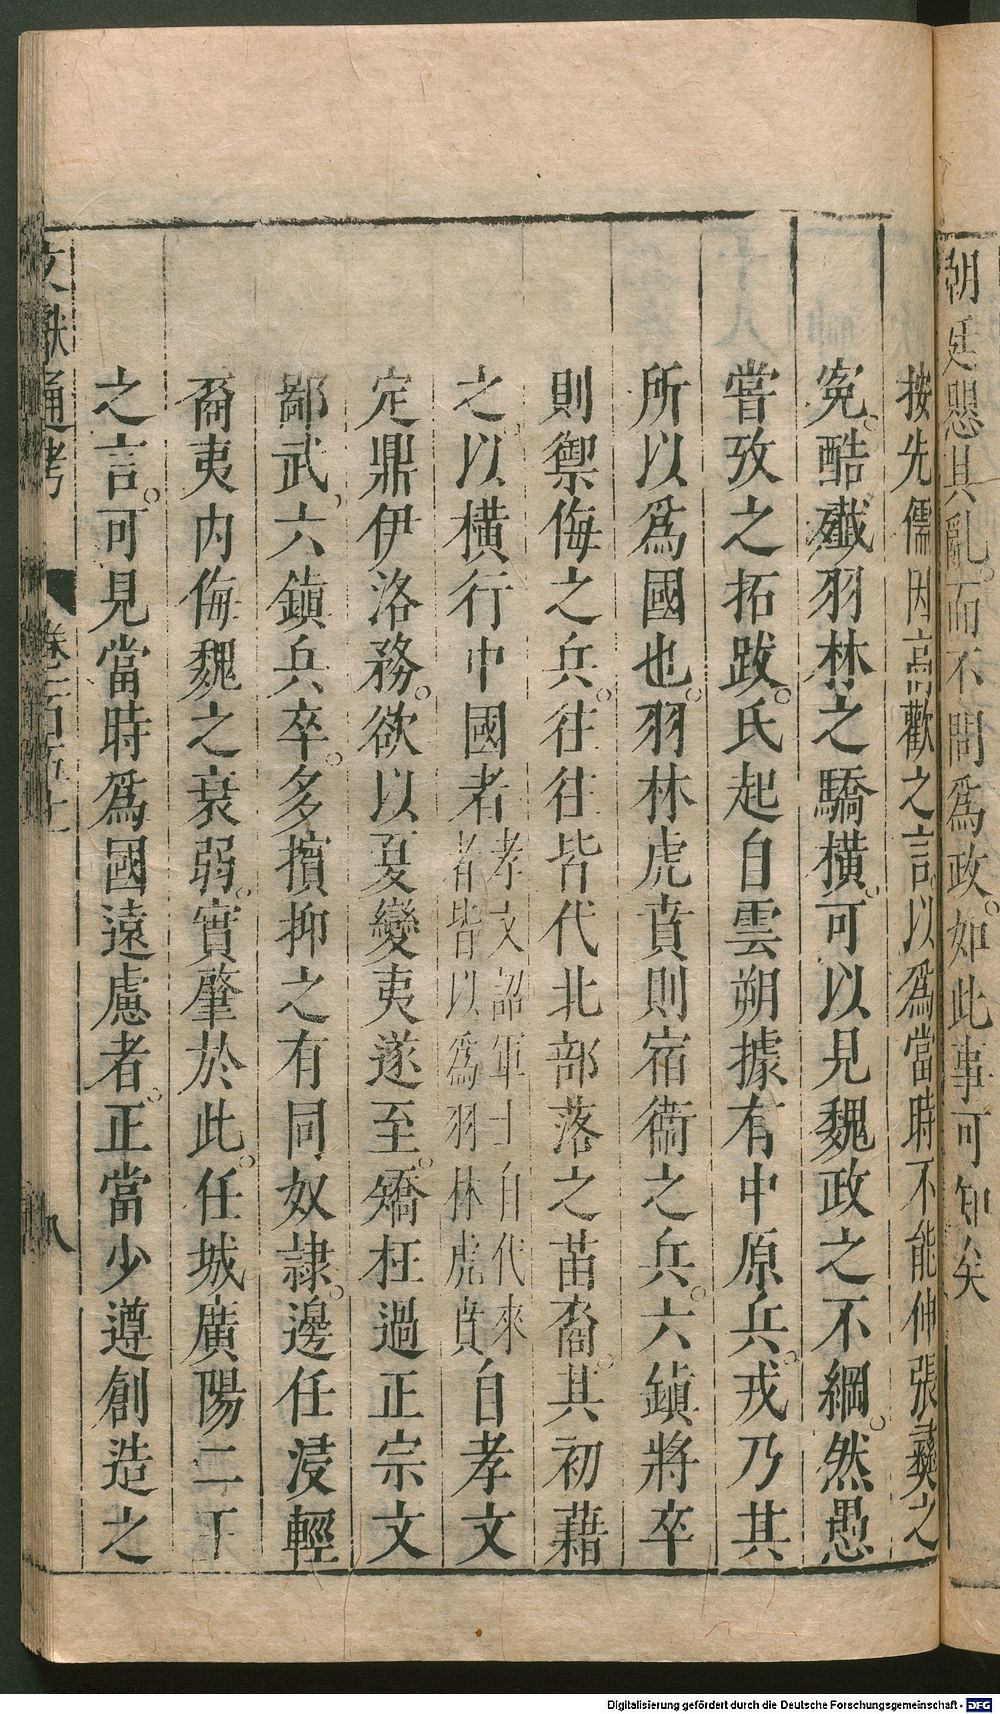 朝廷懸其亂。而不問爲政。如此事可知矣
按先儒因高歡之言。以爲當時不能伸張彝之
寃。酷殲羽林之驕橫。可以見魏政之不綱。然愚
嘗攷之拓跋。氏起自雲朔據有中原兵。戎乃其
所以爲國也。羽林虎賁則宿衞之兵。六鎮將卒
則禦侮之兵。往往皆代北部落之苗裔。其初藉
之。以橫行中國者孝文詔軍士自代來者皆以爲羽林虎賁自孝文
定鼎伊洛務。欲以夏變夷遂至。矯枉過正宗文
鄙武、六鎮兵卒。多擯抑之有同奴隷。邊任浸輕
裔夷内侮魏之衰弱。實肇於此。任城廣陽二王
之言。可見當時爲國遠慮者。正當少遵創造之
文獻通考 卷一百五十一 八
Digitalisierung gefördert durch die Deutsche Forschungsgemeinschaft - DFG